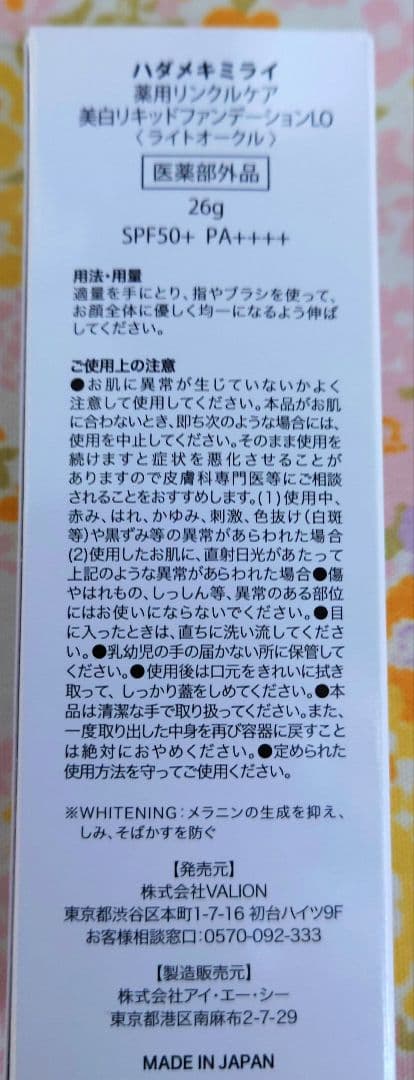 ハダメキミライ
薬用リンクルケア
美白リキッドファンデーションLO
〈ライトオークル〉
医薬部外品
26g
SPF50+ PA++++
用法・用量
適量を手にとり、指やブラシを使って、
お顔全体に優しく均一になるよう伸ば
してください。
ご使用上の注意
●お肌に異常が生じていないかよく
注意して使用してください。本品がお肌
に合わないとき、即ち次のような場合には、
使用を中止してください。そのまま使用を
続けますと症状を悪化させることが
ありますので皮膚科専門医等にご相談
されることをおすすめします。(1)使用中、
赤み、はれ、かゆみ、刺激、色抜け(白斑
等)や黒ずみ等の異常があらわれた場合
(2)使用したお肌に、直射日光があたって
上記のような異常があらわれた場合●傷
やはれもの、しっしん等、異常のある部位
にはお使いにならないでください。●目
に入ったときは、直ちに洗い流してくださ
い。●乳幼児の手の届かない所に保管して
ください。●使用後は口元をきれいに拭き
取って、しっかり蓋をしめてください。●本
品は清潔な手で取り扱ってください。また、
一度取り出した中身を再び容器に戻すこと
は絶対におやめください。●定められた
使用方法を守ってご使用ください。
※WHITENING:メラニンの生成を抑え、
しみ、そばかすを防ぐ
【発売元】
株式会社VALION
東京都渋谷区本町1-7-16 初台ハイツ9F
お客様相談窓口:0570-092-333
【製造販売元】
株式会社アイ・エー・シー
東京都港区南麻布2-7-29
MADE IN JAPAN